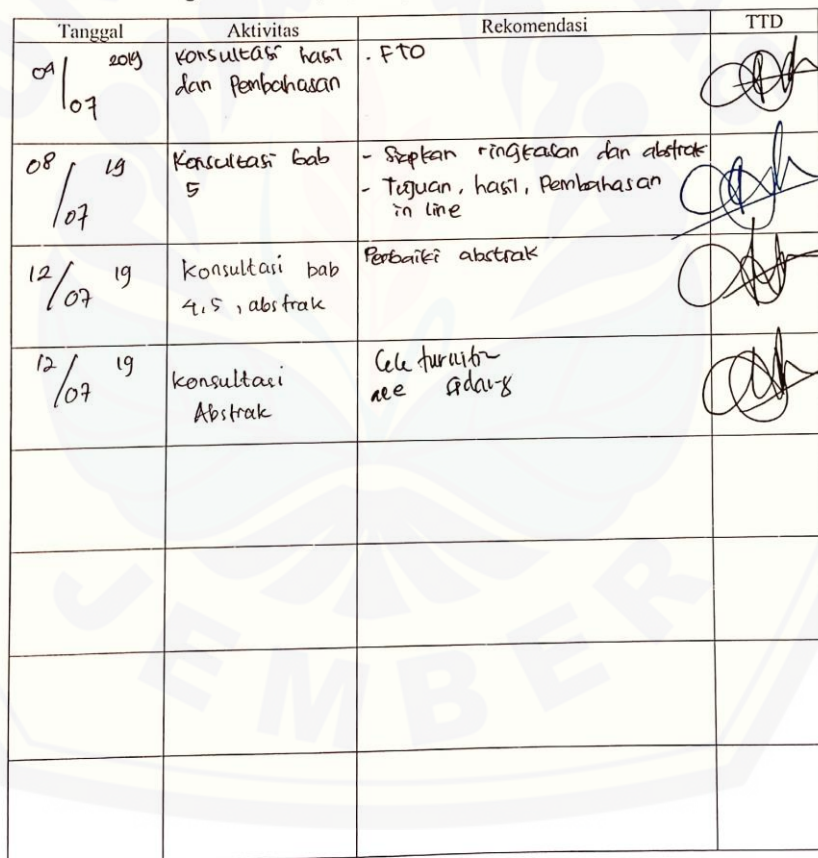 Tanggal Aktivitas Rekomendasi TTD
04/07 2019 Konsultasi hasil . FTO
dan Pembahasan
08/07 19 Konsultasi bab - Siapkan ringkasan dan abstrak
5 - Tujuan, hasil, Pembahasan
in line
12/07 19 konsultasi bab Perbaiki abstrak
4,5, abstrak
12/07 19 konsultasi Cek turnitin
Abstrak acc sidang
JEMBER